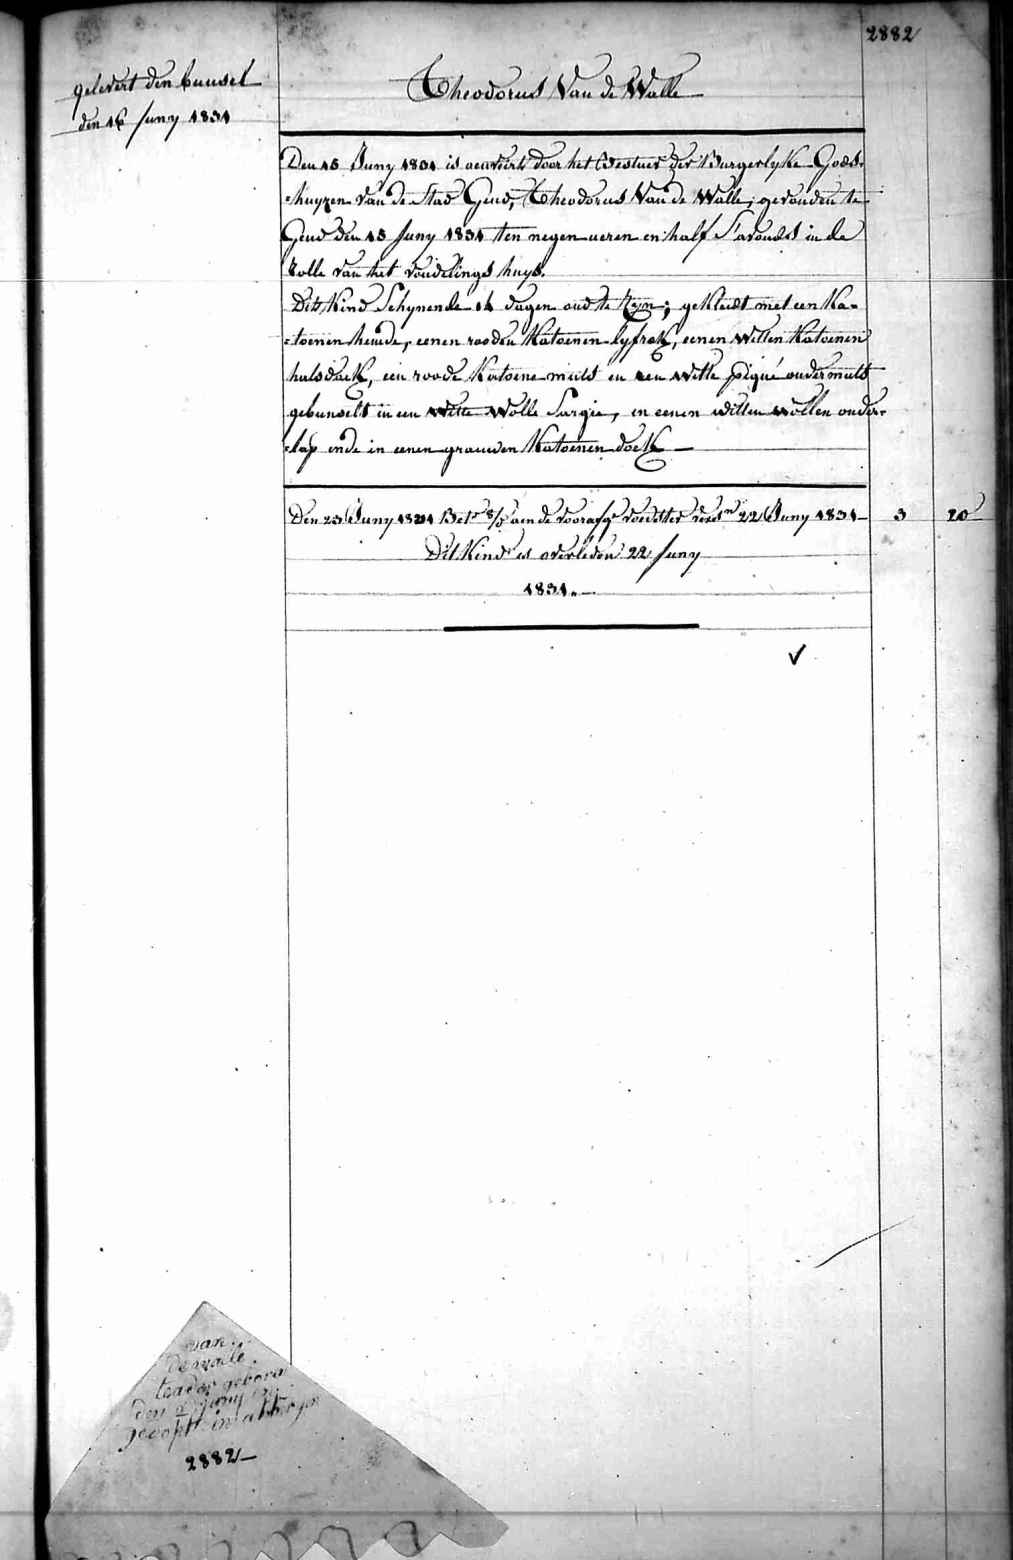 2882
gelevert den bunsel
den 16 Juny 1831
Theodorus Van de Walle
Den 15 Juny 1831 is aenveirt door het Bestuer der Burgerlyke Gods-
-huyzen van de Stad Gend, Theodorus Van de Walle, gevonden te
Gend den 15 Juny 1831 ten negen ueren en half S'avonds in de
rolle van het vondelings huys.
Dit Kind Schynende 14 dagen oud te Zyn; gekleedt met een Ka-
-toenen hemde, eenen rooden Katoenen lyfrok, eenen witten Katoenen
halsdoek, een roode Katoene muts en een witte piqué ondermuts
gebunselt in een witte wolle Sargie, en eenen witten wollen onder-
-lap ende in eenen grauwen Katoenen doek —
Den 23 Juny 1831 aen de voorsz voedster 22 Juny 1831 — 3 20
Dit Kind is overleden 22 Juny
1831. —
van
de walle
teador gebora
den 2 juny
gedopt in
2882 —